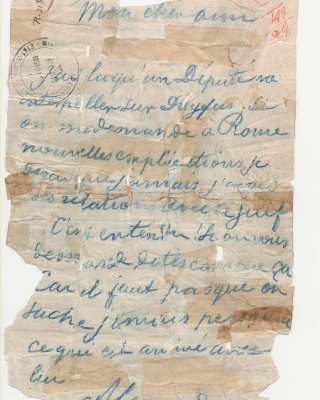 Mon cher ami
J'ai lu qu'un Député va
interpeller sur Dreyfus. Si
on me demande à Rome
nouvelles explications je
dirai que jamais j'avais
des relations avec ce Juif
C'est entendu. Si on vous
demande, dites comme ça
Car il faut pas que on
sache jamais personne
ce qui est arrivé avec
lui